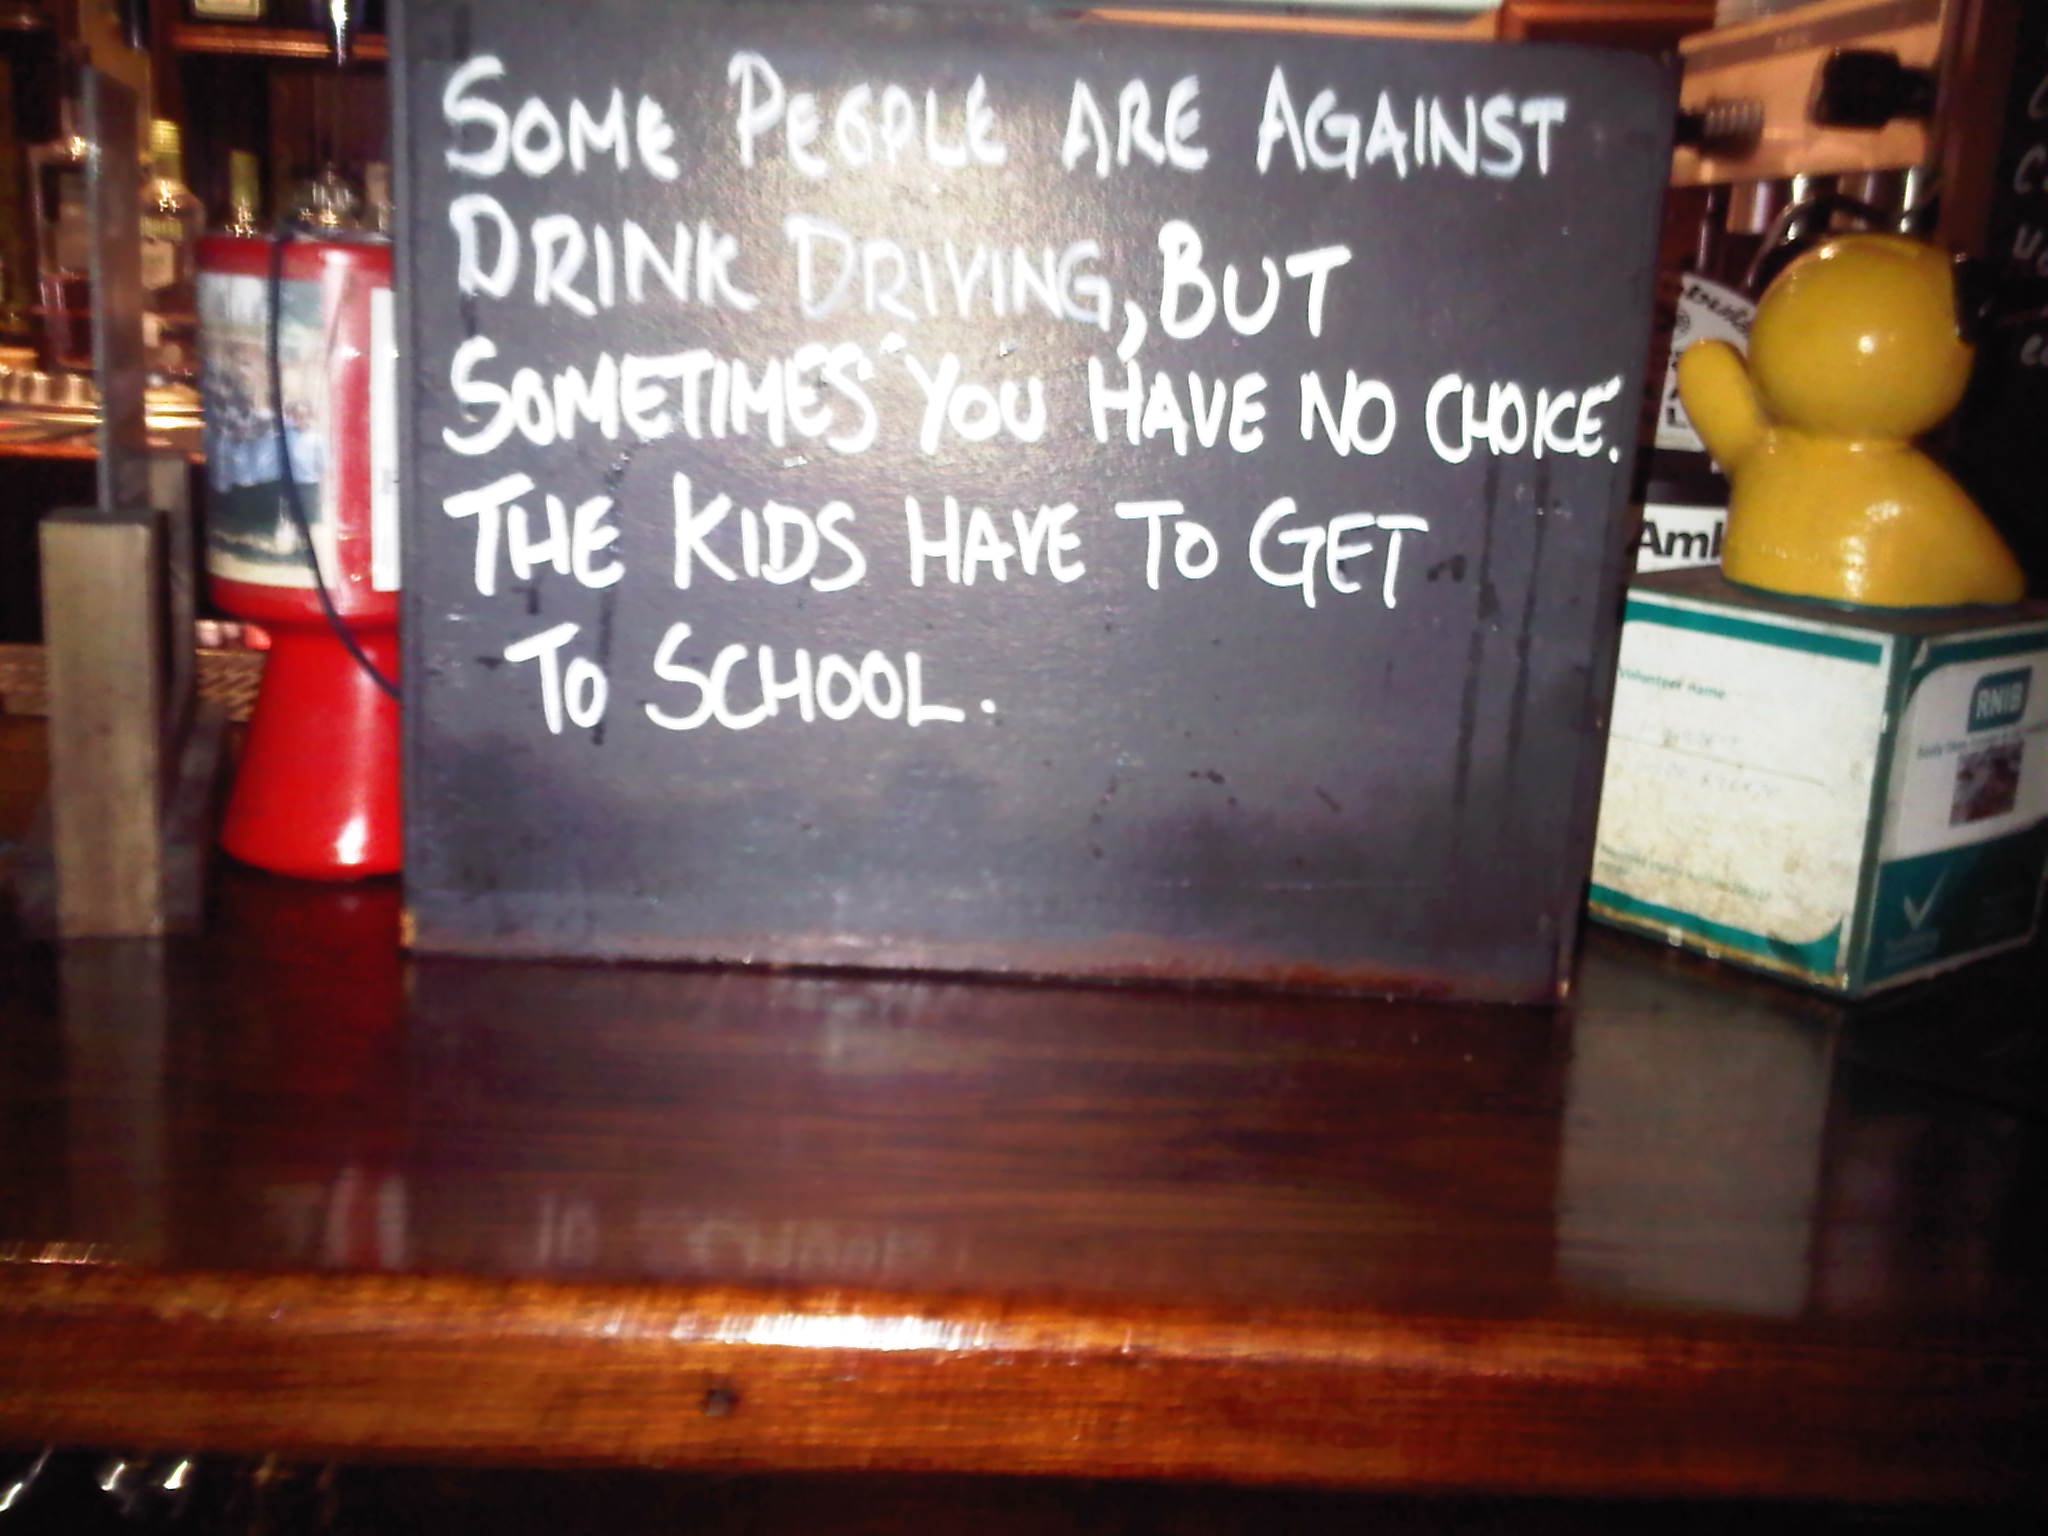 SOME PEOPLE ARE AGAINST
DRINK DRIVING, BUT
SOMETIMES YOU HAVE NO CHOICE.
THE KIDS HAVE TO GET
TO SCHOOL.
Amb
Volunteer name
RNIB